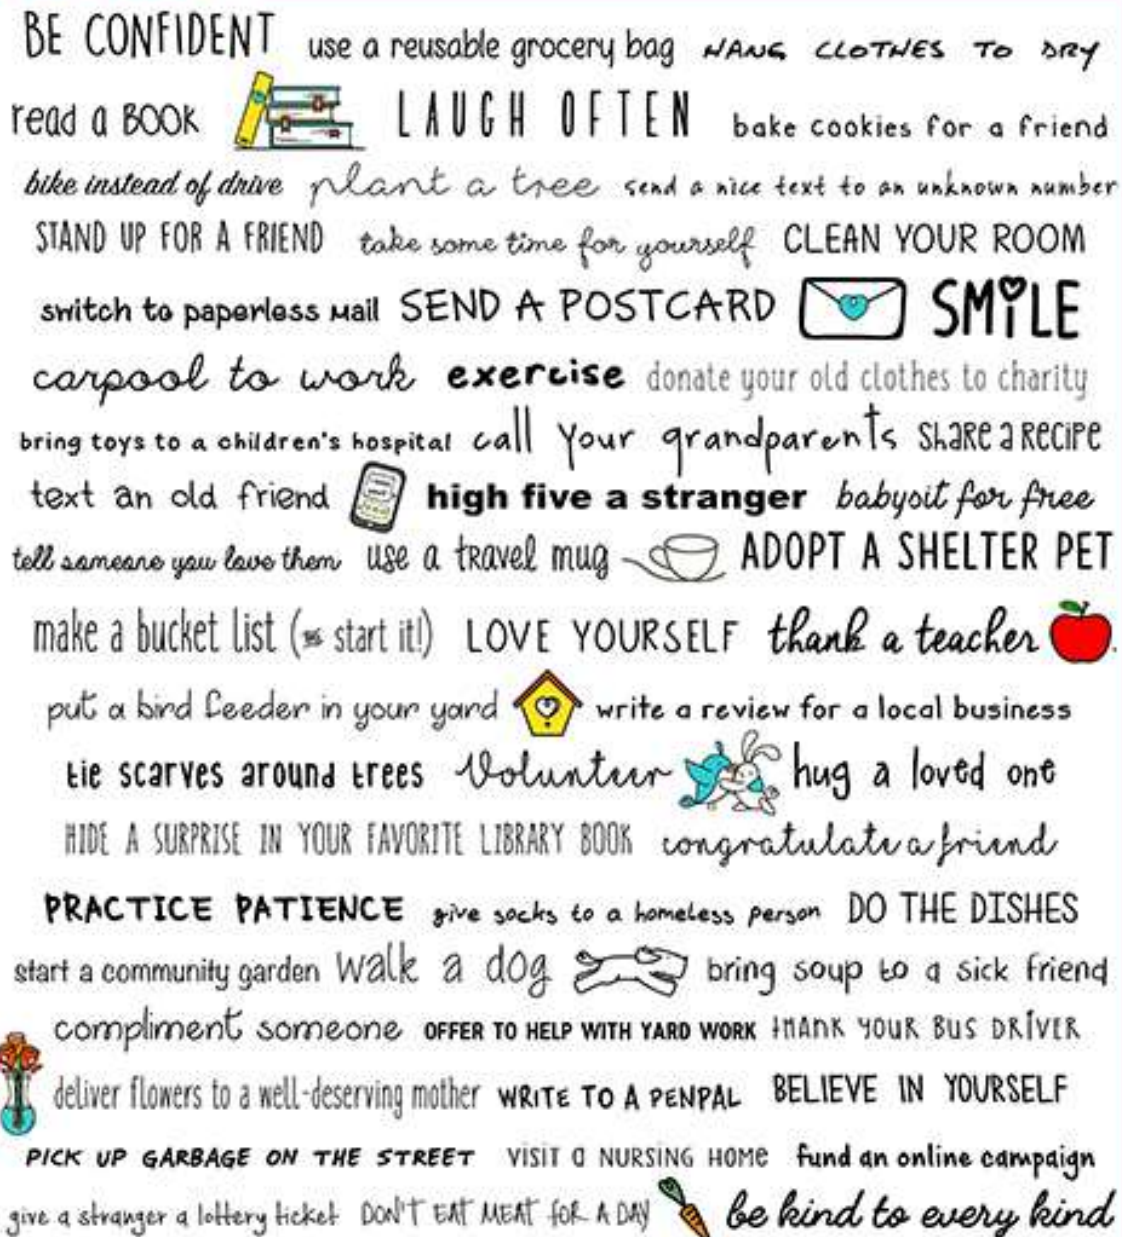 BE CONFIDENT use a reusable grocery bag HANG CLOTHES TO DRY
read a BOOK LAUGH OFTEN bake cookies for a friend
bike instead of drive plant a tree send a nice text to an unknown number
STAND UP FOR A FRIEND take some time for yourself CLEAN YOUR ROOM
switch to paperless mail SEND A POSTCARD SMiLE
carpool to work exercise donate your old clothes to charity
bring toys to a children's hospital call your grandparents SHARE a RECIPE
text an old friend high five a stranger babysit for free
tell someone you love them use a travel mug ADOPT A SHELTER PET
make a bucket list ( start it!) LOVE YOURSELF thank a teacher
put a bird feeder in your yard write a review for a local business
tie scarves around trees Volunteer hug a loved one
HIDE A SURPRISE IN YOUR FAVORITE LIBRARY BOOK congratulate a friend
PRACTICE PATIENCE give socks to a homeless person DO THE DISHES
start a community garden walk a dog bring soup to a sick friend
compliment someone OFFER TO HELP WITH YARD WORK THANK YOUR BUS DRIVER
deliver flowers to a well-deserving mother WRITE TO A PENPAL BELIEVE IN YOURSELF
PICK UP GARBAGE ON THE STREET VISIT a NURSING HOME fund an online campaign
give a stranger a lottery ticket DON'T EAT MEAT FOR A DAY be kind to every kind